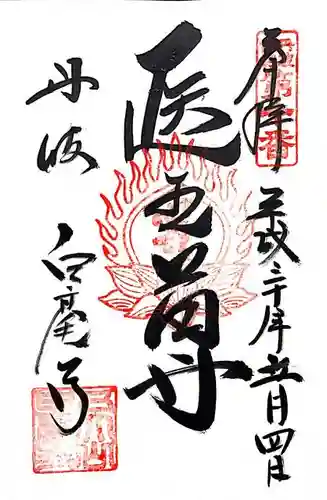 奉拝
平成二十年五月四日
医王尊
丹波 白毫寺